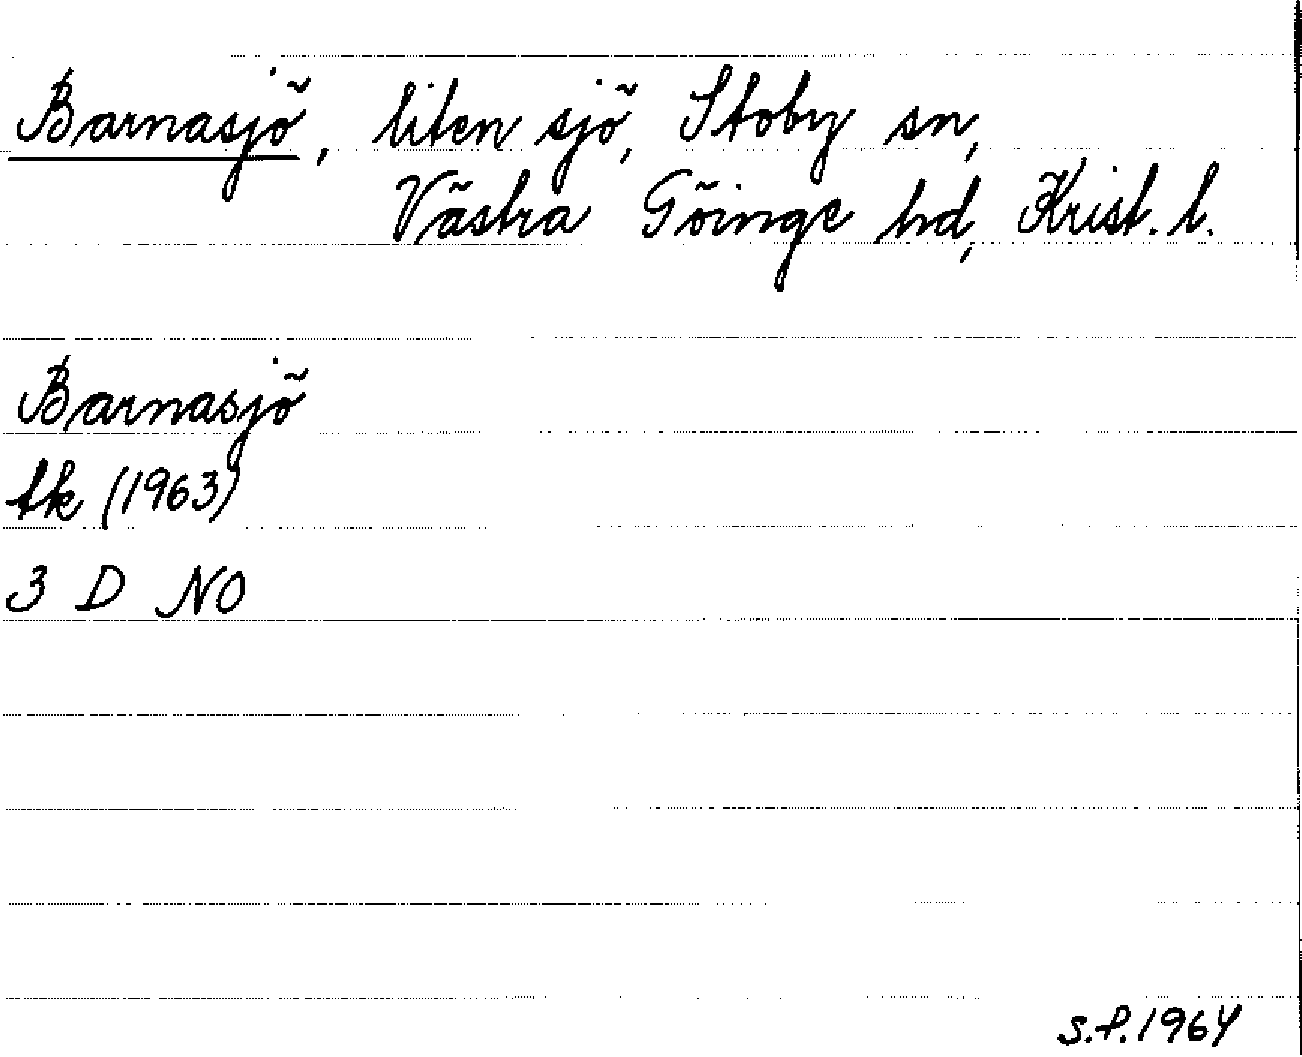 Barnasjö, liten sjö, Stoby sn,
Västra Göinge hd, Krist. l.
Barnasjö
tk (1963)
3 D NO
s.f. 1964